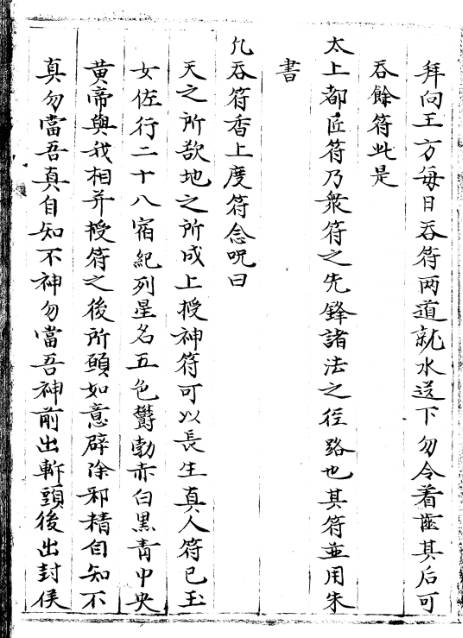 拜向王方每日吞符两道就水送下勿令着齒其后可
吞餘符此是
太上都匠符乃衆符之先鋒諸法之徑路也其符並用朱
書
凢吞符香上度符念呪曰
天之所欲地之所成上授神符可以長生真人符已玉
女佐行二十八宿紀列星名五色欝勃赤白黑青中央
黄帝與我相并授符之後所願如意辟除邪精自知不
真勿當吾真自知不神勿當吾神前出斬頭後出封侯